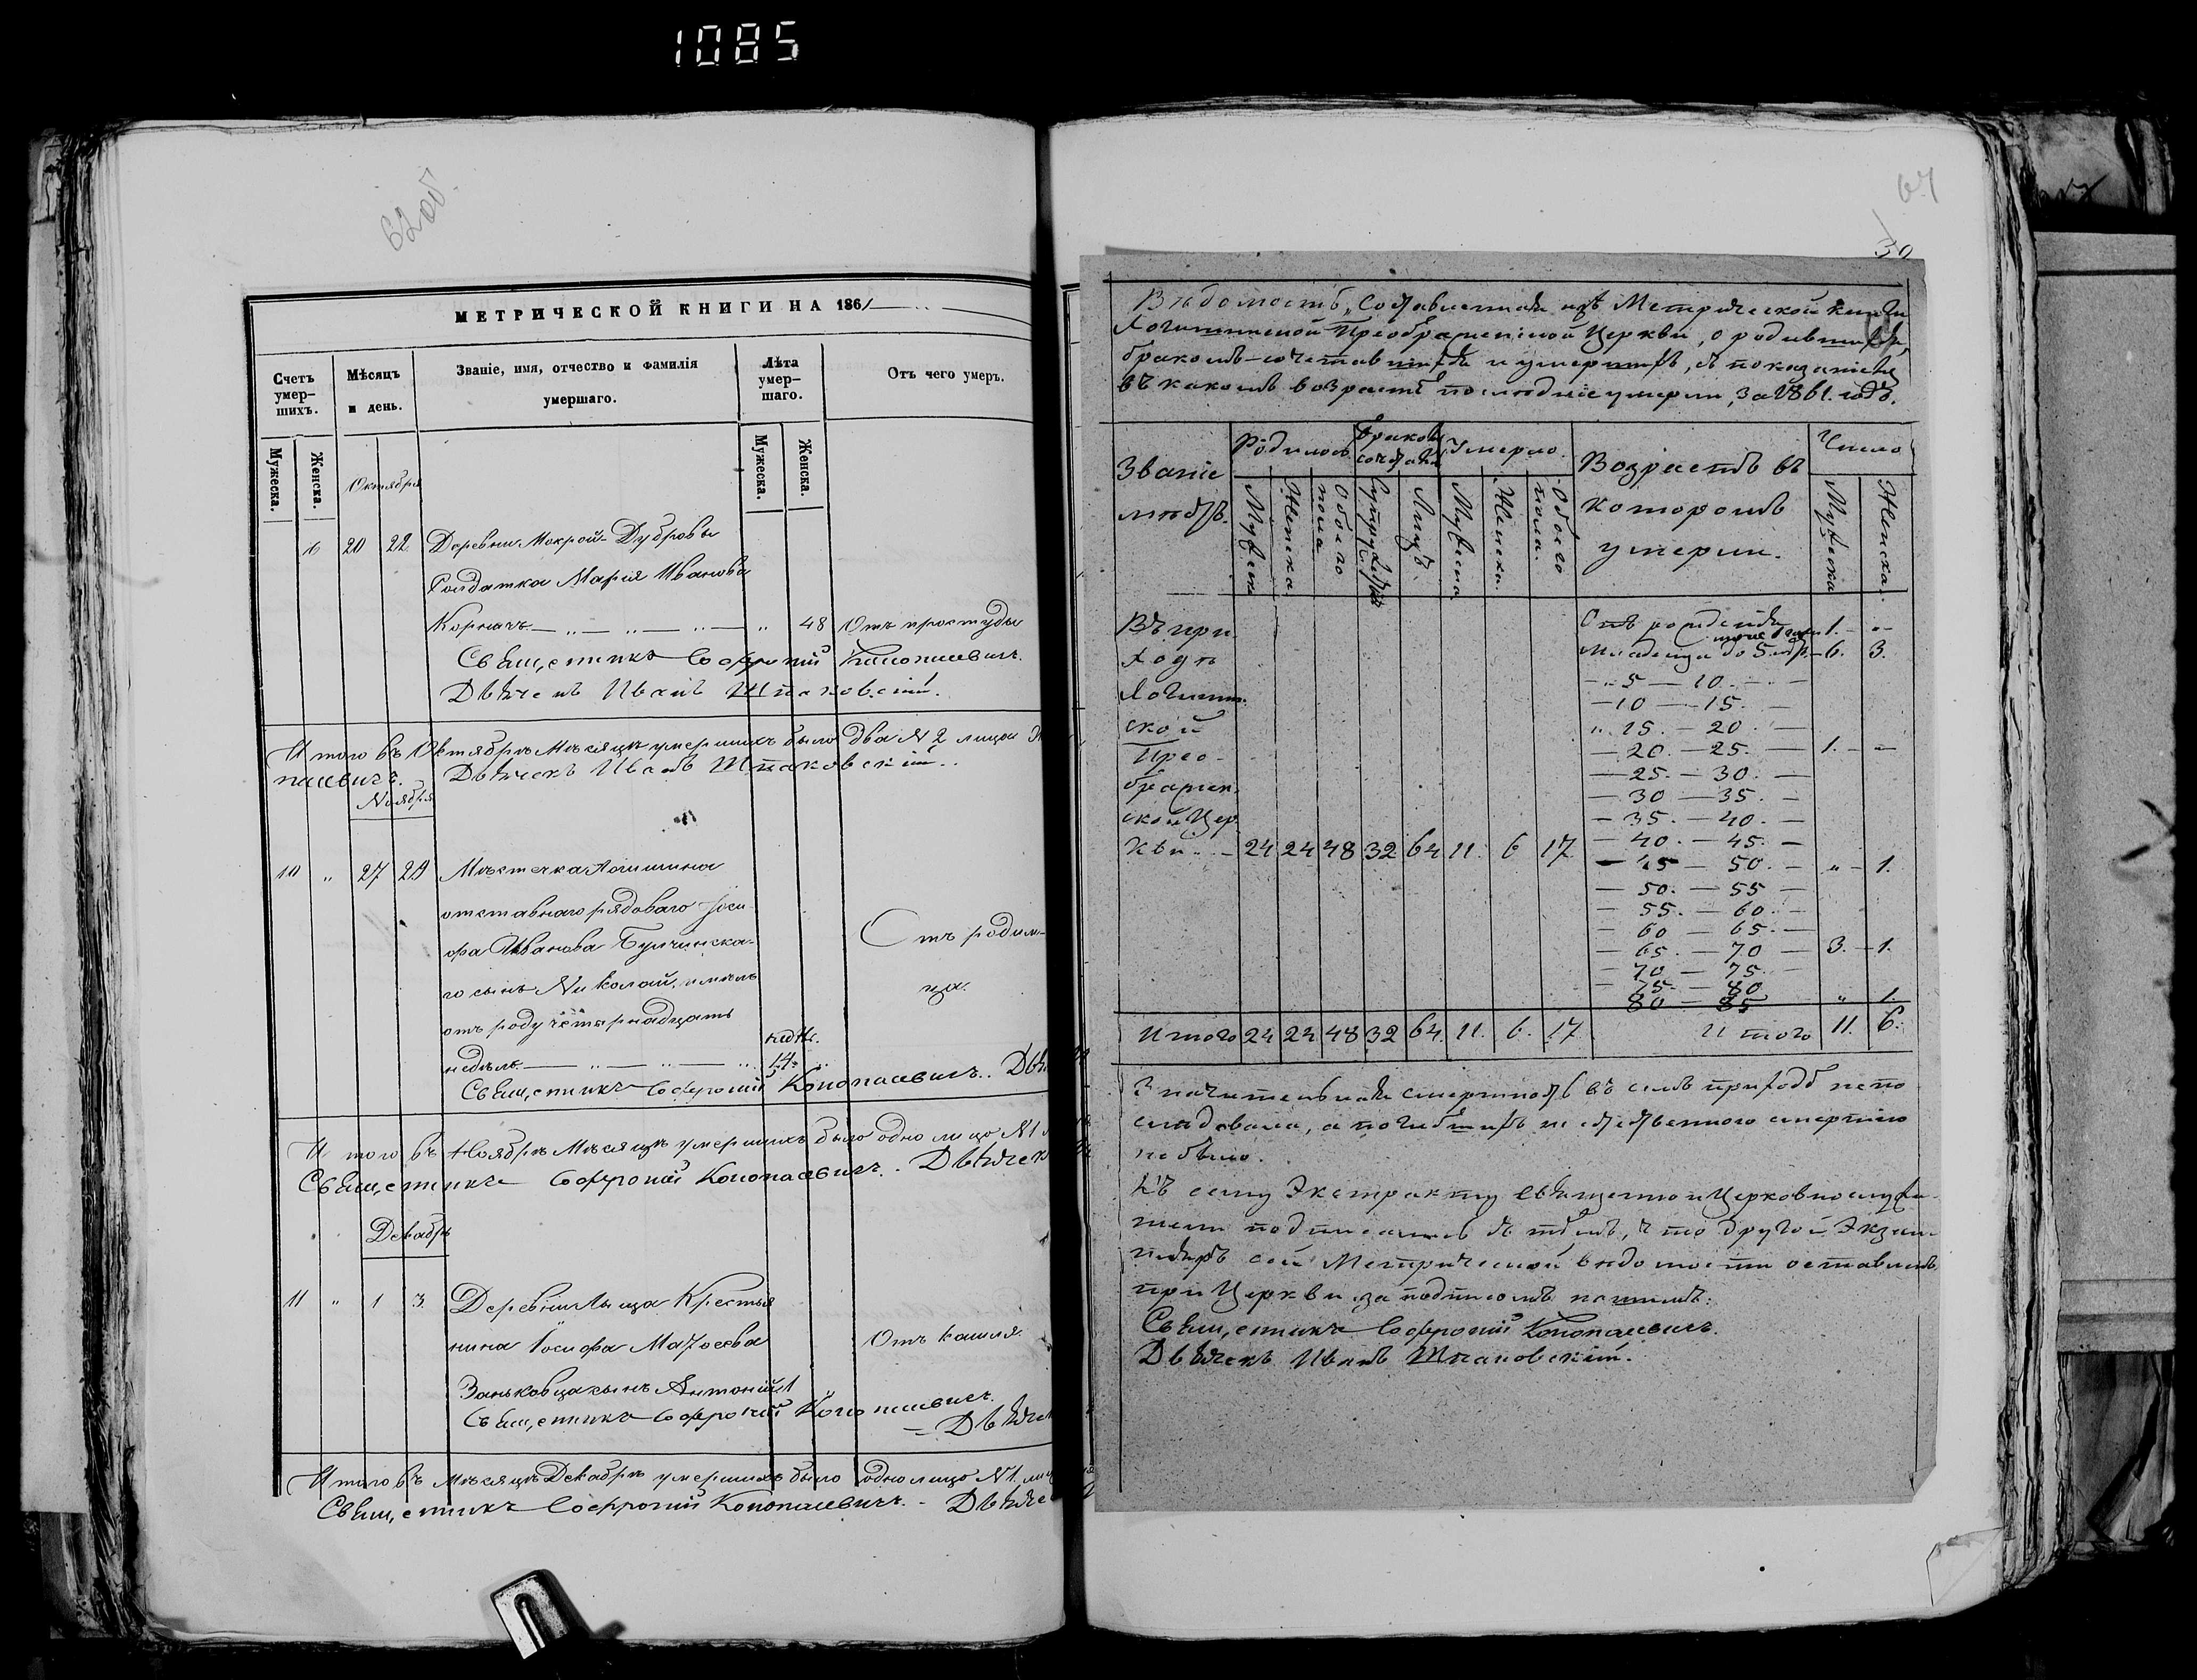 1085
62 об.
МЕТРИЧЕСКОЙ КНИГИ НА 1861
Счетъ умер-шихъ.
Мѣсяцъ и день.
Званіе, имя, отчество и фамилія умершаго.
Лѣта умер-шаго.
Отъ чего умеръ.
Мужеска.
Женска.
Мужеска.
Женска.
Октября
6 20 22 Деревни Мокрой-Дубровы
Солдатка Марія Иванова
Корначъ 48 Отъ простуды
Священникъ Софроній Конопасевичъ.
Дьячекъ Иванъ Шпаковскій.
Итого въ Октябрѣ Мѣсяцѣ умершихъ было два № 2 лица
пасевичъ. Дьячекъ Иванъ Шпаковскій.
Ноября
10 „ 27 29 Мѣстечка Логишина
отставнаго рядоваго Іоси-
фа Иванова
го сынъ Николай, имѣлъ
отъ роду четырнадцать
недѣль 14
недѣ.
Отъ родим-
ца.
Священникъ Софроній Конопасевичъ.. Дья
Итого въ Ноябрѣ Мѣсяцѣ умершихъ было одно лицо № 1
Священникъ Софроній Конопасевичъ. Дьячекъ
Декабрь
11 „ 1 3. Деревни Лыща Крестья
нина Іосифа Матѳеева
Заньковца сынъ Антоній 1 „
Отъ кашля.
Священникъ Софроній Конопасевичъ.
Дьячек
Итого въ Мѣсяцѣ Декабрѣ умершихъ было одно лицо № 1. ли
Священникъ Софроній Конопасевичъ. - Дьяче
30
Вѣдомость, Составленная изъ Метрической книги
Логишинской Преображенской Церкви, о родившихся,
бракомъ-сочетавшихся и умершихъ, съ показаніемъ
въ какомъ возрастѣ послѣдніе умерли, за 1861. годъ.
Званіе людѣ.
Родилось.
Браковъ сочетано
Умерло.
Возрастъ въ которомъ умерли.
Число
Мужеска
Женска
Обоего пола
Супружествъ
Лицъ.
Мужеска
Женска.
Обоего пола.
Мужеска
Женска.
Въ при-
ходѣ
Логишин-
ской
Прео-
бражен-
ской Цер-
кви 24 24 48 32 64 11. 6 17
Отъ рожденія 1. - „
Младенца до 5 6. 3.
- „ 5 — 10. —
— 10 — 15. —
„ 15. — 20. —
— 20. — 25. — 1. - —
— 25. — 30. —
— 30 — 35. —
— 35. — 40. —
— 40. — 45. —
— 45 — 50. — „ - 1.
— 50. — 55 —
— 55. — 60. —
— 60 — 65. —
— 65. — 70 — 3. - 1.
— 70 — 75. —
— 75. — 80
80 — 85 „ 1.
Итого 24 24 48 32 64. 11. 6. 17 Итого 11. 6.
Значительная смертность въ семъ приходѣ непо
слѣдовала, а погибшихъ неестественною смертію
небыло.
Къ сему Экстракту священно и Церковнослужи-
тели подписались съ тѣмъ, что другой Экзем-
пляръ сей Метрической вѣдомости оставленъ
при Церкви за подписомъ нашимъ:
Священникъ Софроній Конопасевичъ.
Дьячекъ Иванъ Шпаковскій.